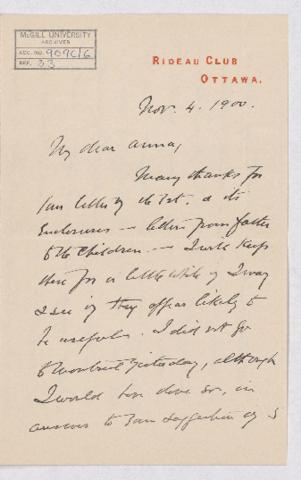 McGILL UNIVERSITY
ARCHIVES
ACC. NO. 909C/6
REF. 33
RIDEAU CLUB
OTTAWA.
Nov. 4. 1900.
My dear Anna,
Many thanks for
your letter of the 1st. & its
enclosures — letters from father
to the children — I will keep
these for a little while if I may
& see if they appear likely to
be useful. I did not go
to Montreal yesterday, although
I would have done so, in
answer to your suggestion